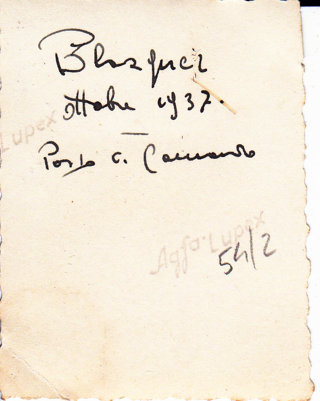 Blazquez
Lupex ottobre 1937.
Posto Comando
Agfa-Lupex
54/2